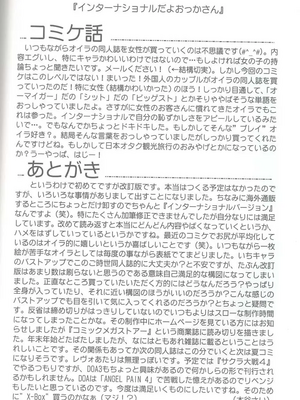 『インターナショナルだよおっかさん』
コミケ話
いつもながらオイラの同人誌を女性が買っていくのは不思議です(#^_^#)。内
容エグいし、特にキャラかわいいわけではないので…もしよければ女の子の持
論ちょっと聞きたいです。メールください！(←結構切実)。しかし今回のコミ
ケはこのレベルではない！まいった！外国人のカップルがオイラの同人誌買っ
ていったのだ！特に女性(結構かわいかった)のほう！しっかり目通して、「オ
ーマイガー」だの「シット」だの「ビッグスト」とかそりゃやばそうな単語を
おっしゃっていましたよ。さすがに女性のお客さんに慣れてきたオイラだが参
いった。インターナショナルで自分の恥ずかしさをアピールしているみたい
で…。でもなんでかちょっとドキドキした。もしかしてそんな"プレイ"オ
イラ好き？。結局そんな言葉をおっしゃっていましたがしっかり買ってくれた
んですけどね。もしかして日本オタク観光旅行のおみやげとかになっているの
か？うーやっば、はじー！
あとがき
というわけで初めてですが改訂版です。本当はつくる予定はなかったので
すが、いろいろな事情がありまして出すことになりました。ちなみに海外通販
するところにちょっとだけ卸すのでちゃんと『インターナショナルバージョン』
なんですよ(笑)。特にたくさん加筆修正できませんでしたが自分なりには満足
しています。改めて読み返すと本当にどんどん内容やばくなっていくというか、
ハメをはずしていっているというかですね。最近のコミケでお尻が平均化して
いるのはオイラ的に嬉しいというか喜ばしいことです(笑)。いつもながら一枚
絵が苦手なオイラとしては毎度の事ながら表紙でてまどりました。いちキャラ
のバストアップでこのご時世同人誌的に大丈夫か？と不安ですが、たぶん改訂
版はあまり数は刷らないと思うのである意味自己満足的な構図になってしまい
ました。正直なところ買っていただいた方的にはどうなんだろう？やっぱり
全身が入っていたり、それに近い構図のほうがいいのだろうか？こんな感じの
バストアップでも目を引いて気に入ってくれるのだろうか？とちょっと疑問で
す。反省は締め切りがはっきりしていないのでいつもよりはスローな制作時間
になってしまったことかな。その制作中にホームページを見ている方にはお知
らせしましたが『コミックメガストアー』という商業誌に読み切りを描きまし
た。年末年始とだたしましたが、なにはともあれ雑誌に載るということはう
れしいことです。その関係もあってか次の同人誌はこの分でいくと次は夏コミ
になりそうです。レヴォあたりは無理っぽいです。予定では『サクラ大戦4』
でやるつもりですが、DOA3もちょっと興味があるので何かしらの形で刊行され
るかもしれません。DOAは『ANGEL PAIN 4』で苦戦した憶えがあるのでリベンジ
もしたいと思っているのです。今度は満足したくものにしたいですね。そのため
に"X-Box"買うのかなぁ(マジ！？)